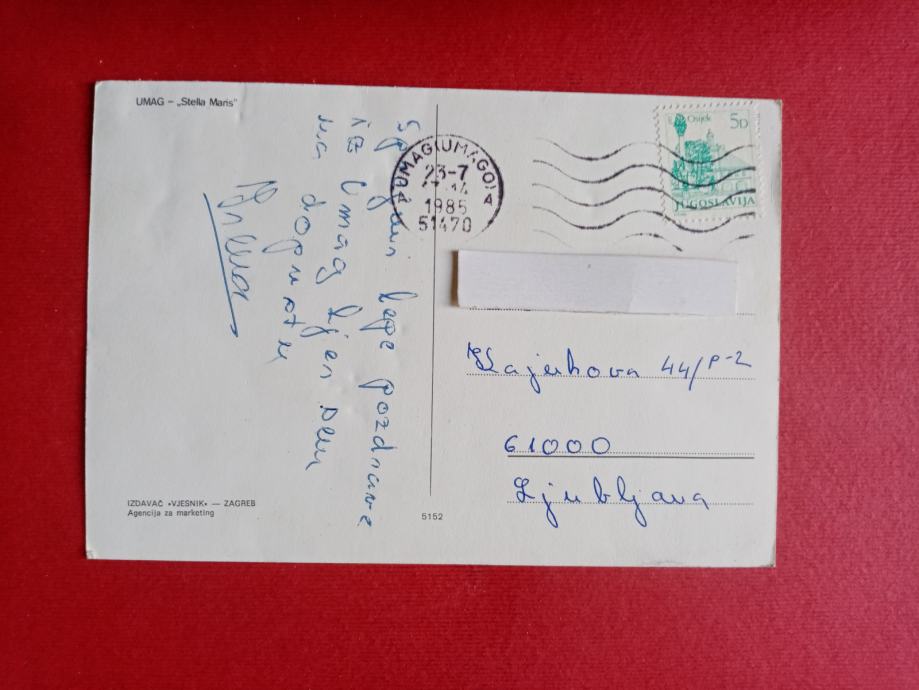 UMAG – „Stella Maris"
Osijek
5D
JUGOSLAVIJA
UMAG(UMAGO)A
23-7
1985
51470
lepe pozdrave
iz Umag
na dopustu
Kajuhova 44/P-2
61000
Ljubljana
IZDAVAČ «VJESNIK» — ZAGREB
Agencija za marketing
5152